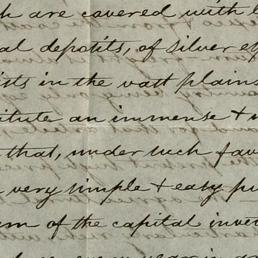 are covered with
al deposits, of silver
ists in the vast plains
titute an immense +
that, under such fav
very simple + easy p
m of the capital inve